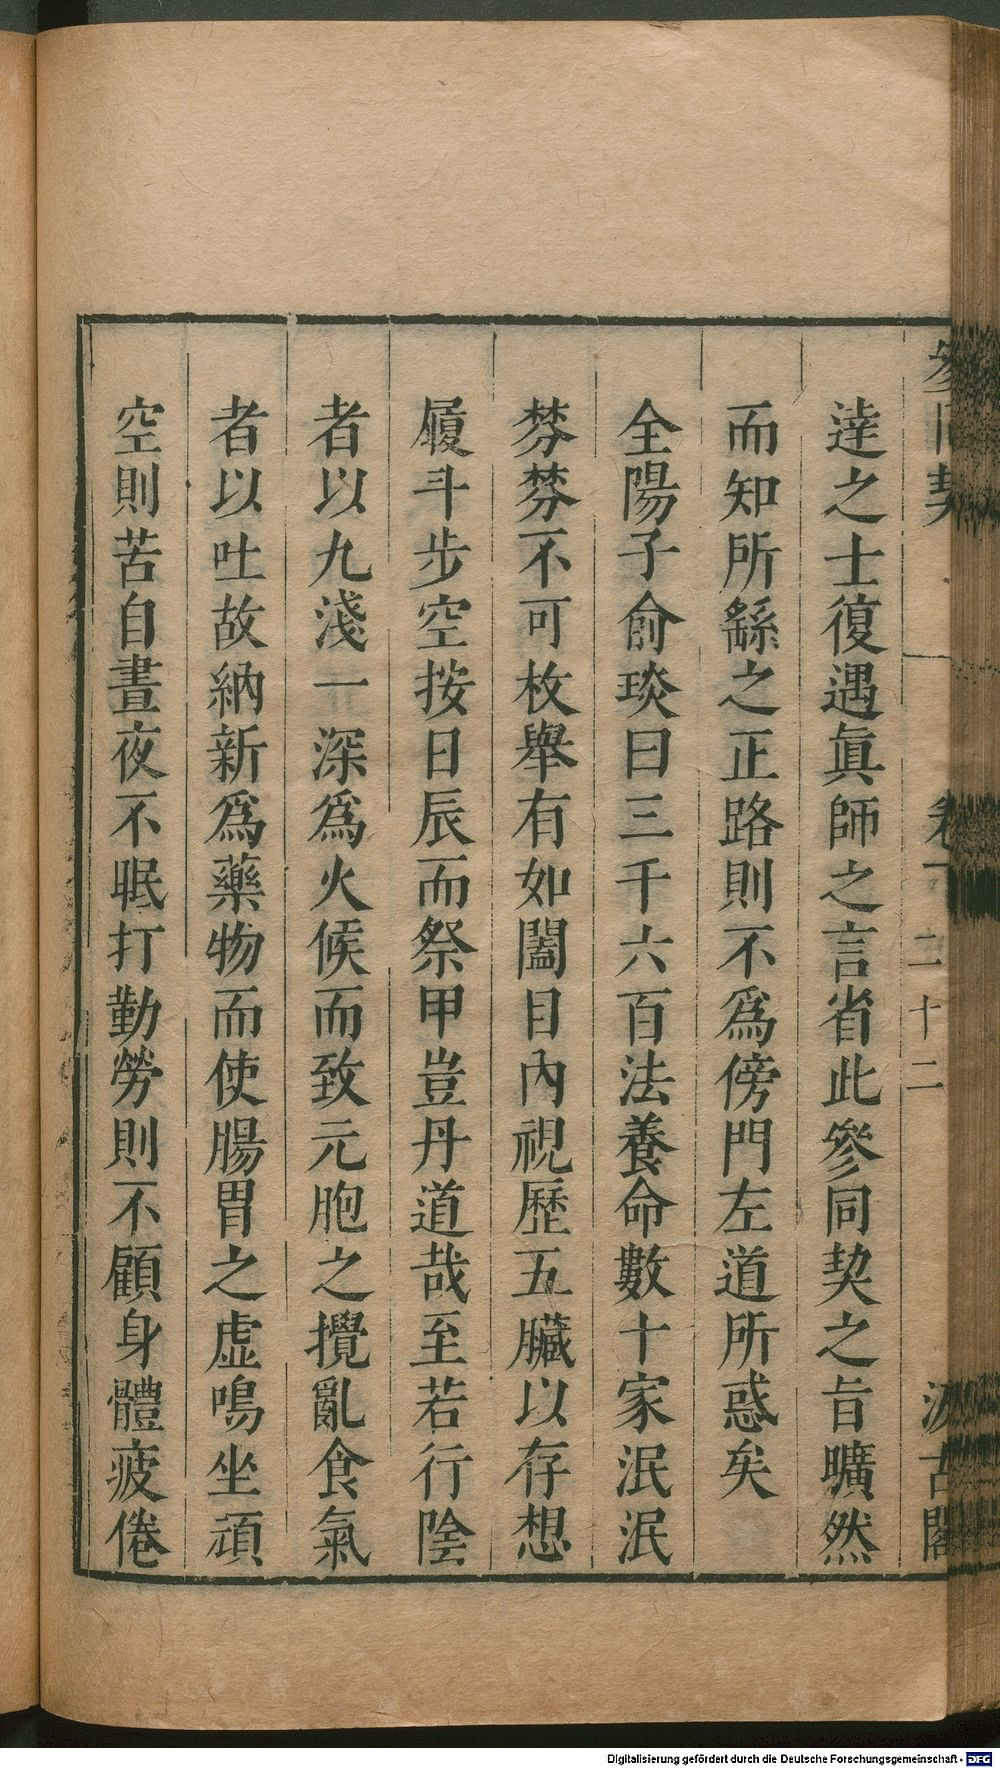 參同契 卷下 二十二 汲古閣
達之士復遇眞師之言省此參同契之旨曠然
而知所繇之正路則不爲傍門左道所惑矣
全陽子俞琰曰三千六百法養命數十家泯泯
棼棼不可枚舉有如闔目內視歷五臟以存想
履斗步空按日辰而祭甲豈丹道哉至若行陰
者以九淺一深爲火候而致元胞之攪亂食氣
者以吐故納新爲藥物而使腸胃之虛鳴坐頑
空則苦自晝夜不眠打勤勞則不顧身體疲倦
Digitalisierung gefördert durch die Deutsche Forschungsgemeinschaft - DFG